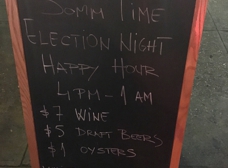 Somm Time
Election Night
Happy Hour
4PM - 1 AM
$7 Wine
$5 Draft Beers
$1 Oysters